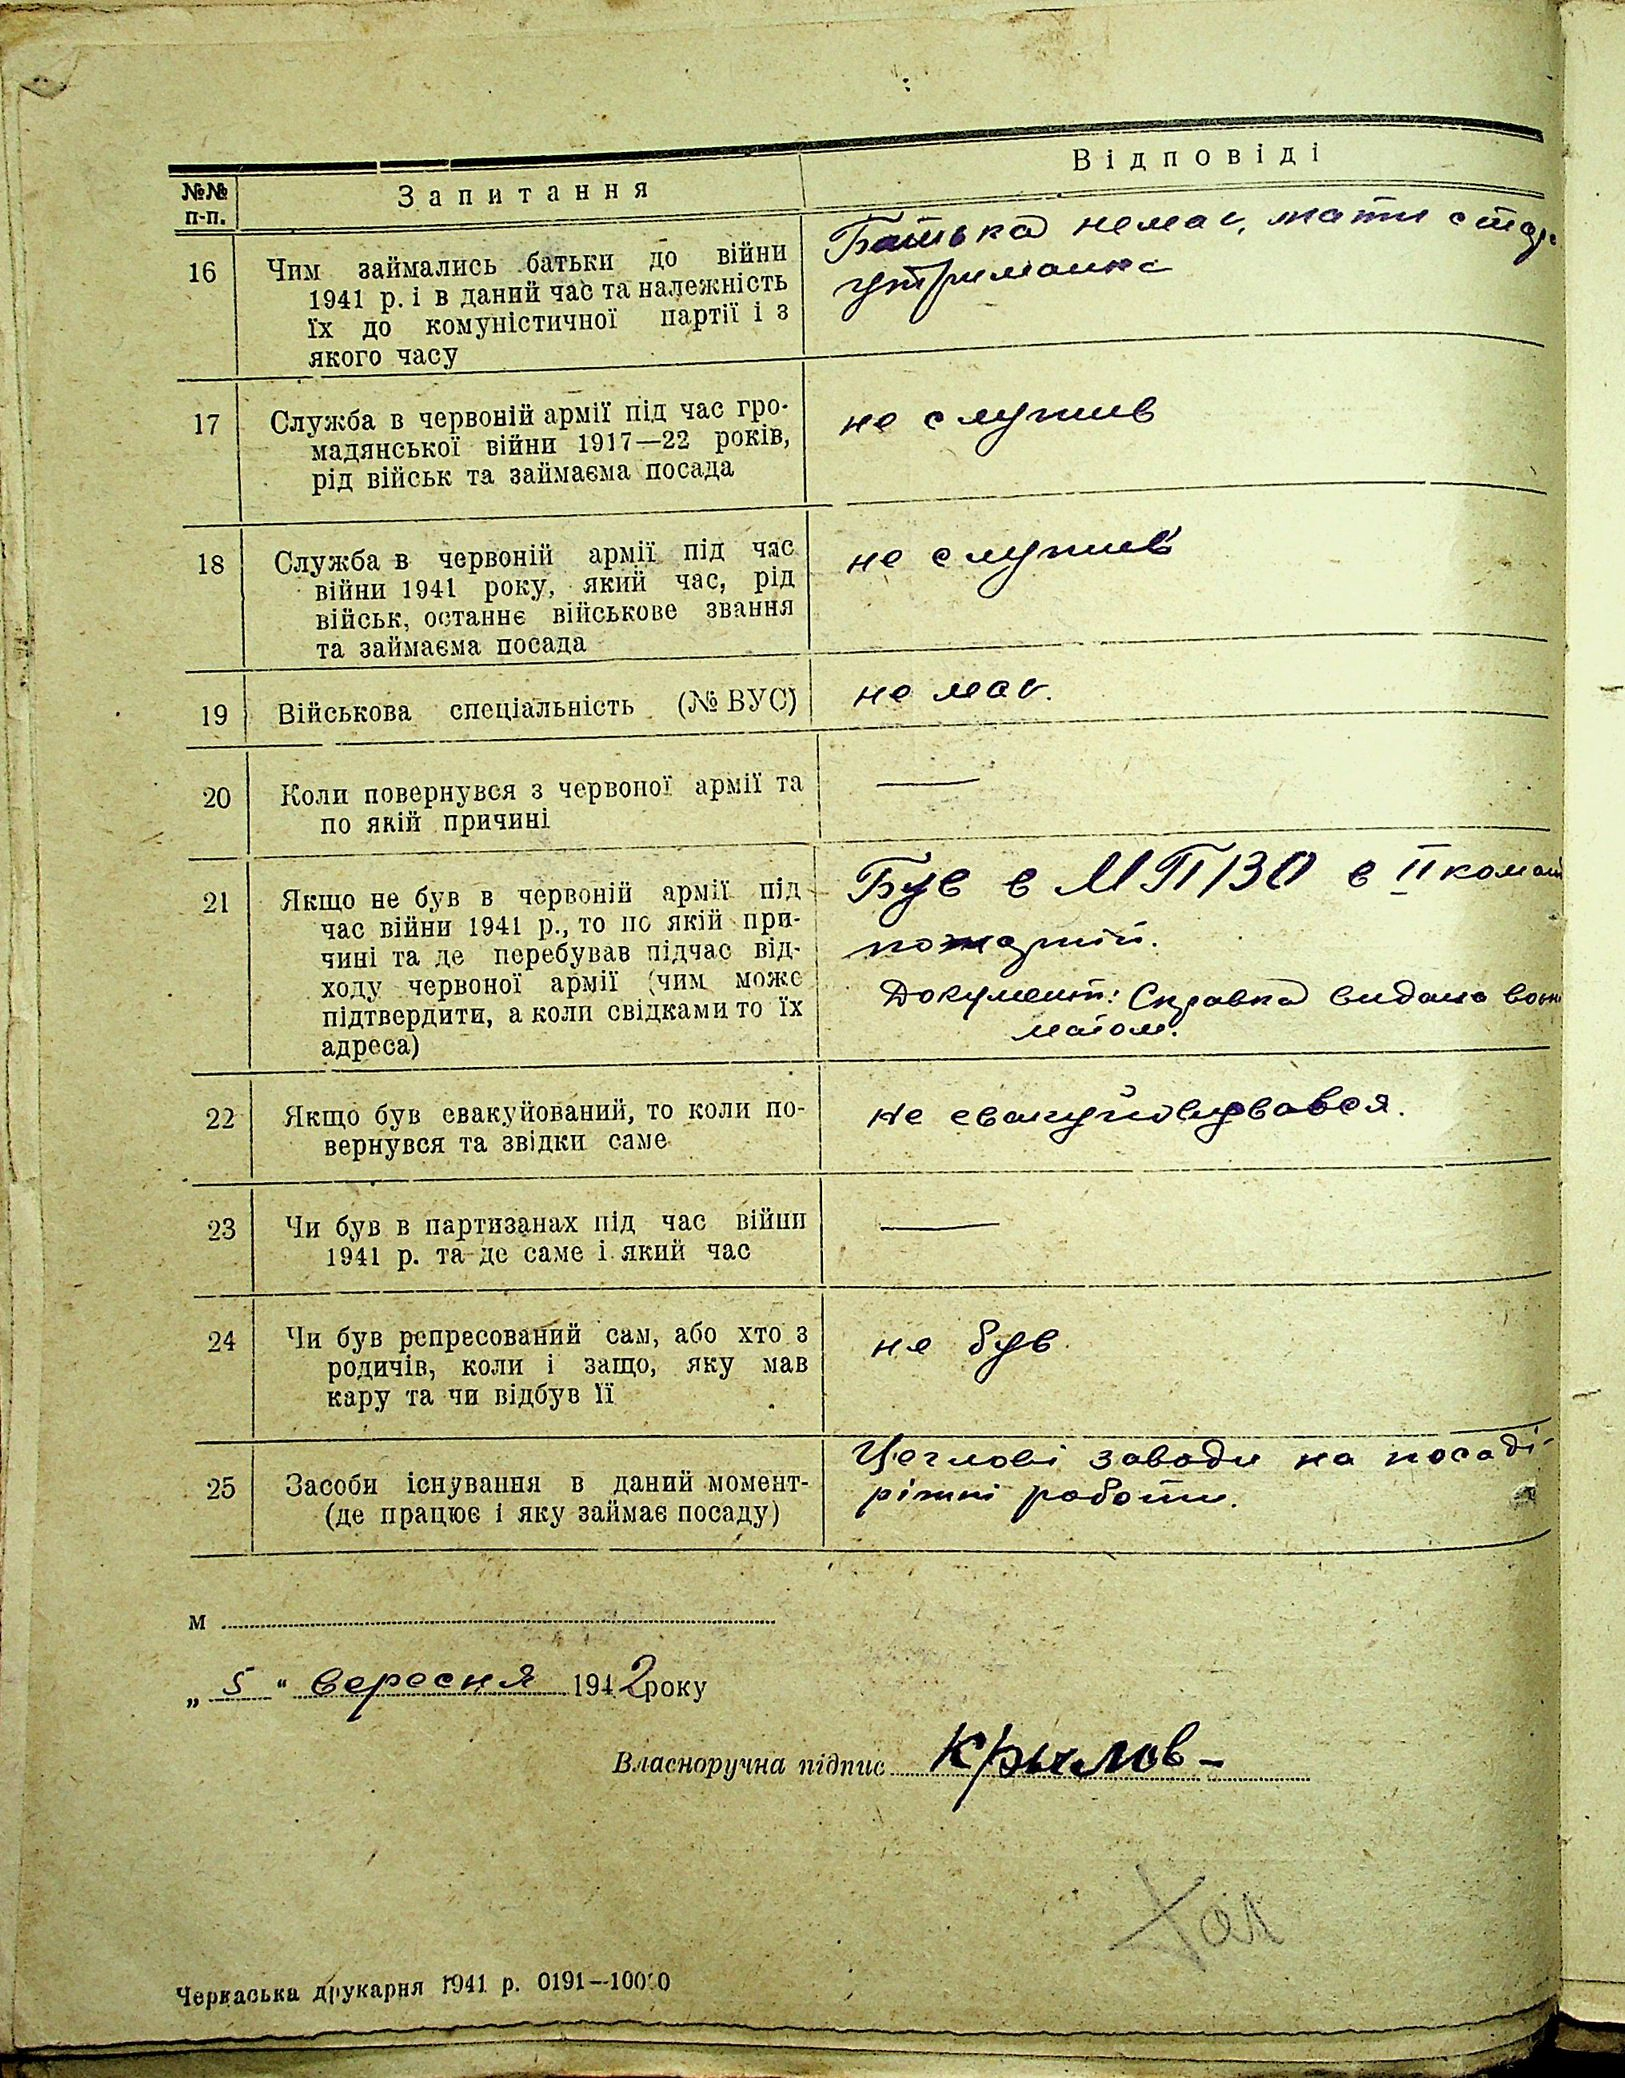 №№ п-п.
Запитання
Відповіді
16
Чим займались батьки до війни
1941 р. і в даний час та належність
їх до комуністичної партії і з
якого часу
Батька немає, мати стар.
утриманка
17
Служба в червоній армії під час гро-
мадянської війни 1917—22 років,
рід військ та займаєма посада
не служив
18
Служба в червоній армії під час
війни 1941 року, який час, рід
військ, останнє військове звання
та займаєма посада
не служив
19
Військова спеціальність (№ ВУС)
не має.
20
Коли повернувся з червоної армії та
по якій причині
—
21
Якщо не був в червоній армії під
час війни 1941 р., то по якій при-
чині та де перебував підчас від-
ходу червоної армії (чим може
підтвердити, а коли свідками то їх
адреса)
Був в МПВО в II коман
пожарній.
Документ: Справка видана воєн
матом.
22
Якщо був евакуйований, то коли по-
вернувся та звідки саме
не евакуйовувався.
23
Чи був в партизанах під час війни
1941 р. та де саме і який час
—
24
Чи був репресований сам, або хто з
родичів, коли і защо, яку мав
кару та чи відбув її
не був
25
Засоби існування в даний момент-
(де працює і яку займає посаду)
Цеглові заводи на посаді
ріжні роботи.
м
„ 5 " вересня 1942 року
Власноручна підпис Крылов -
Черкаська друкарня 1941 р. 0191—10000